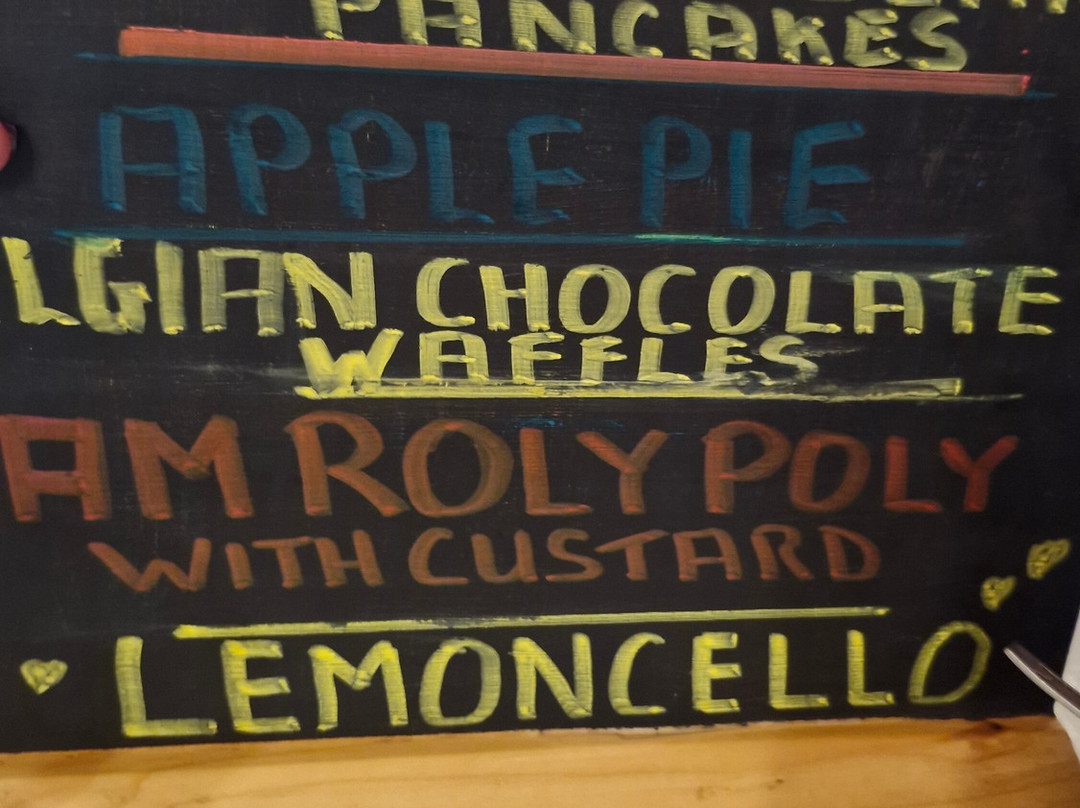 PANCAKES
APPLE PIE
LGIAN CHOCOLATE
WAFFLES
AM ROLY POLY
WITH CUSTARD
LEMONCELLO